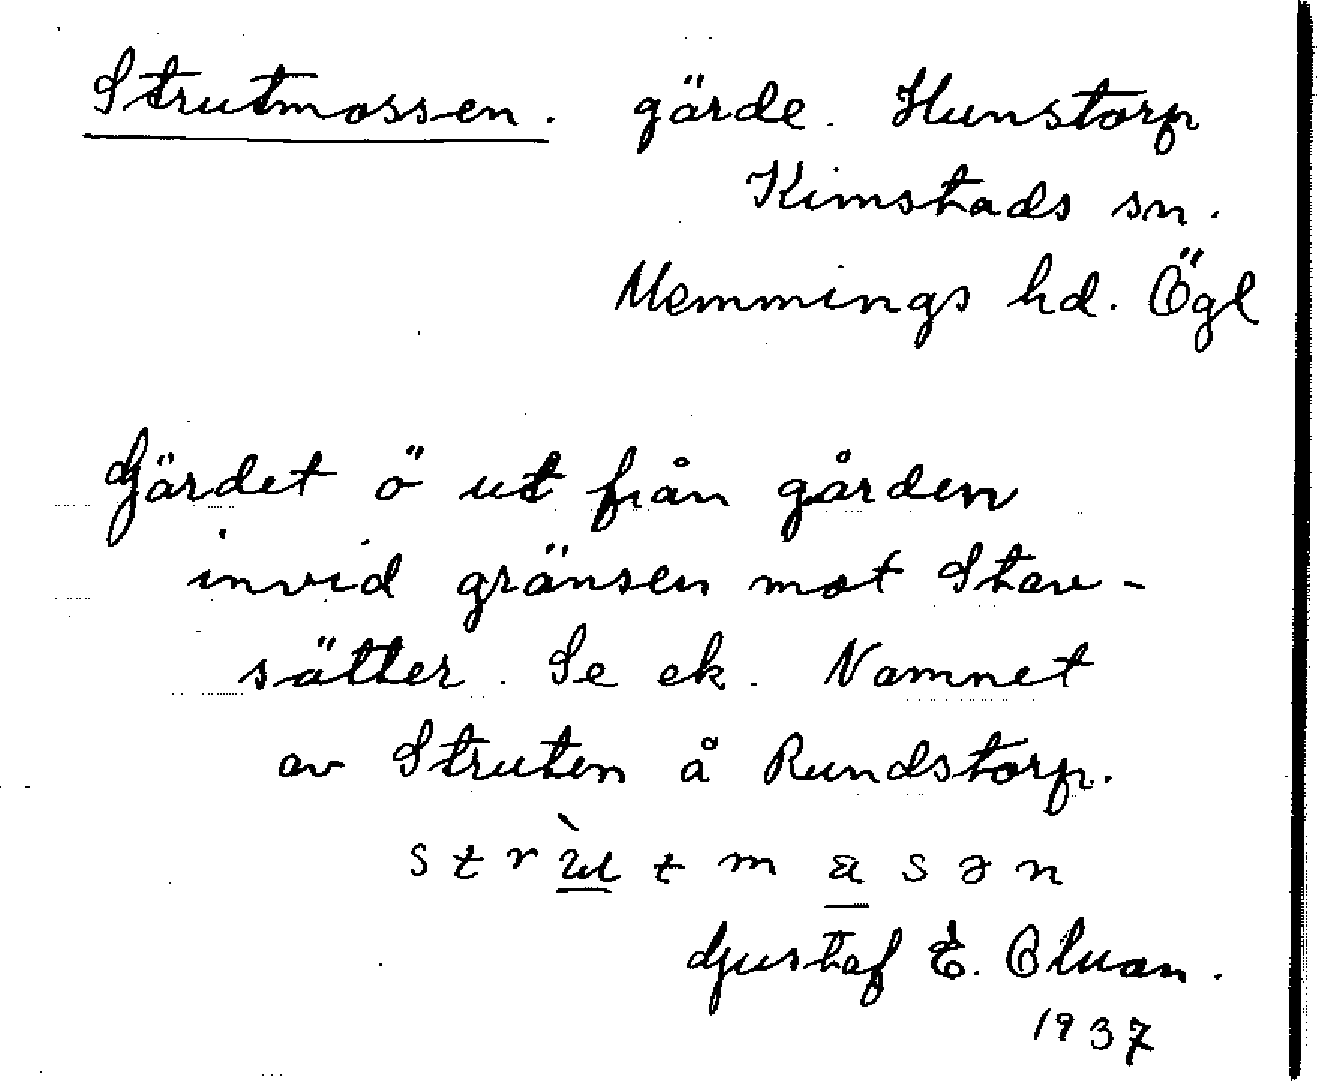 Strutmossen. gärde. Hunstorp
Kimstads sn.
Memmings hd. Ögl
Gärdet ö ut från gården
invid gränsen mot Stav-
sätter. Se ek. Namnet
av Struten å Rundstorp.
strùtmasən
Gustaf E.
1937